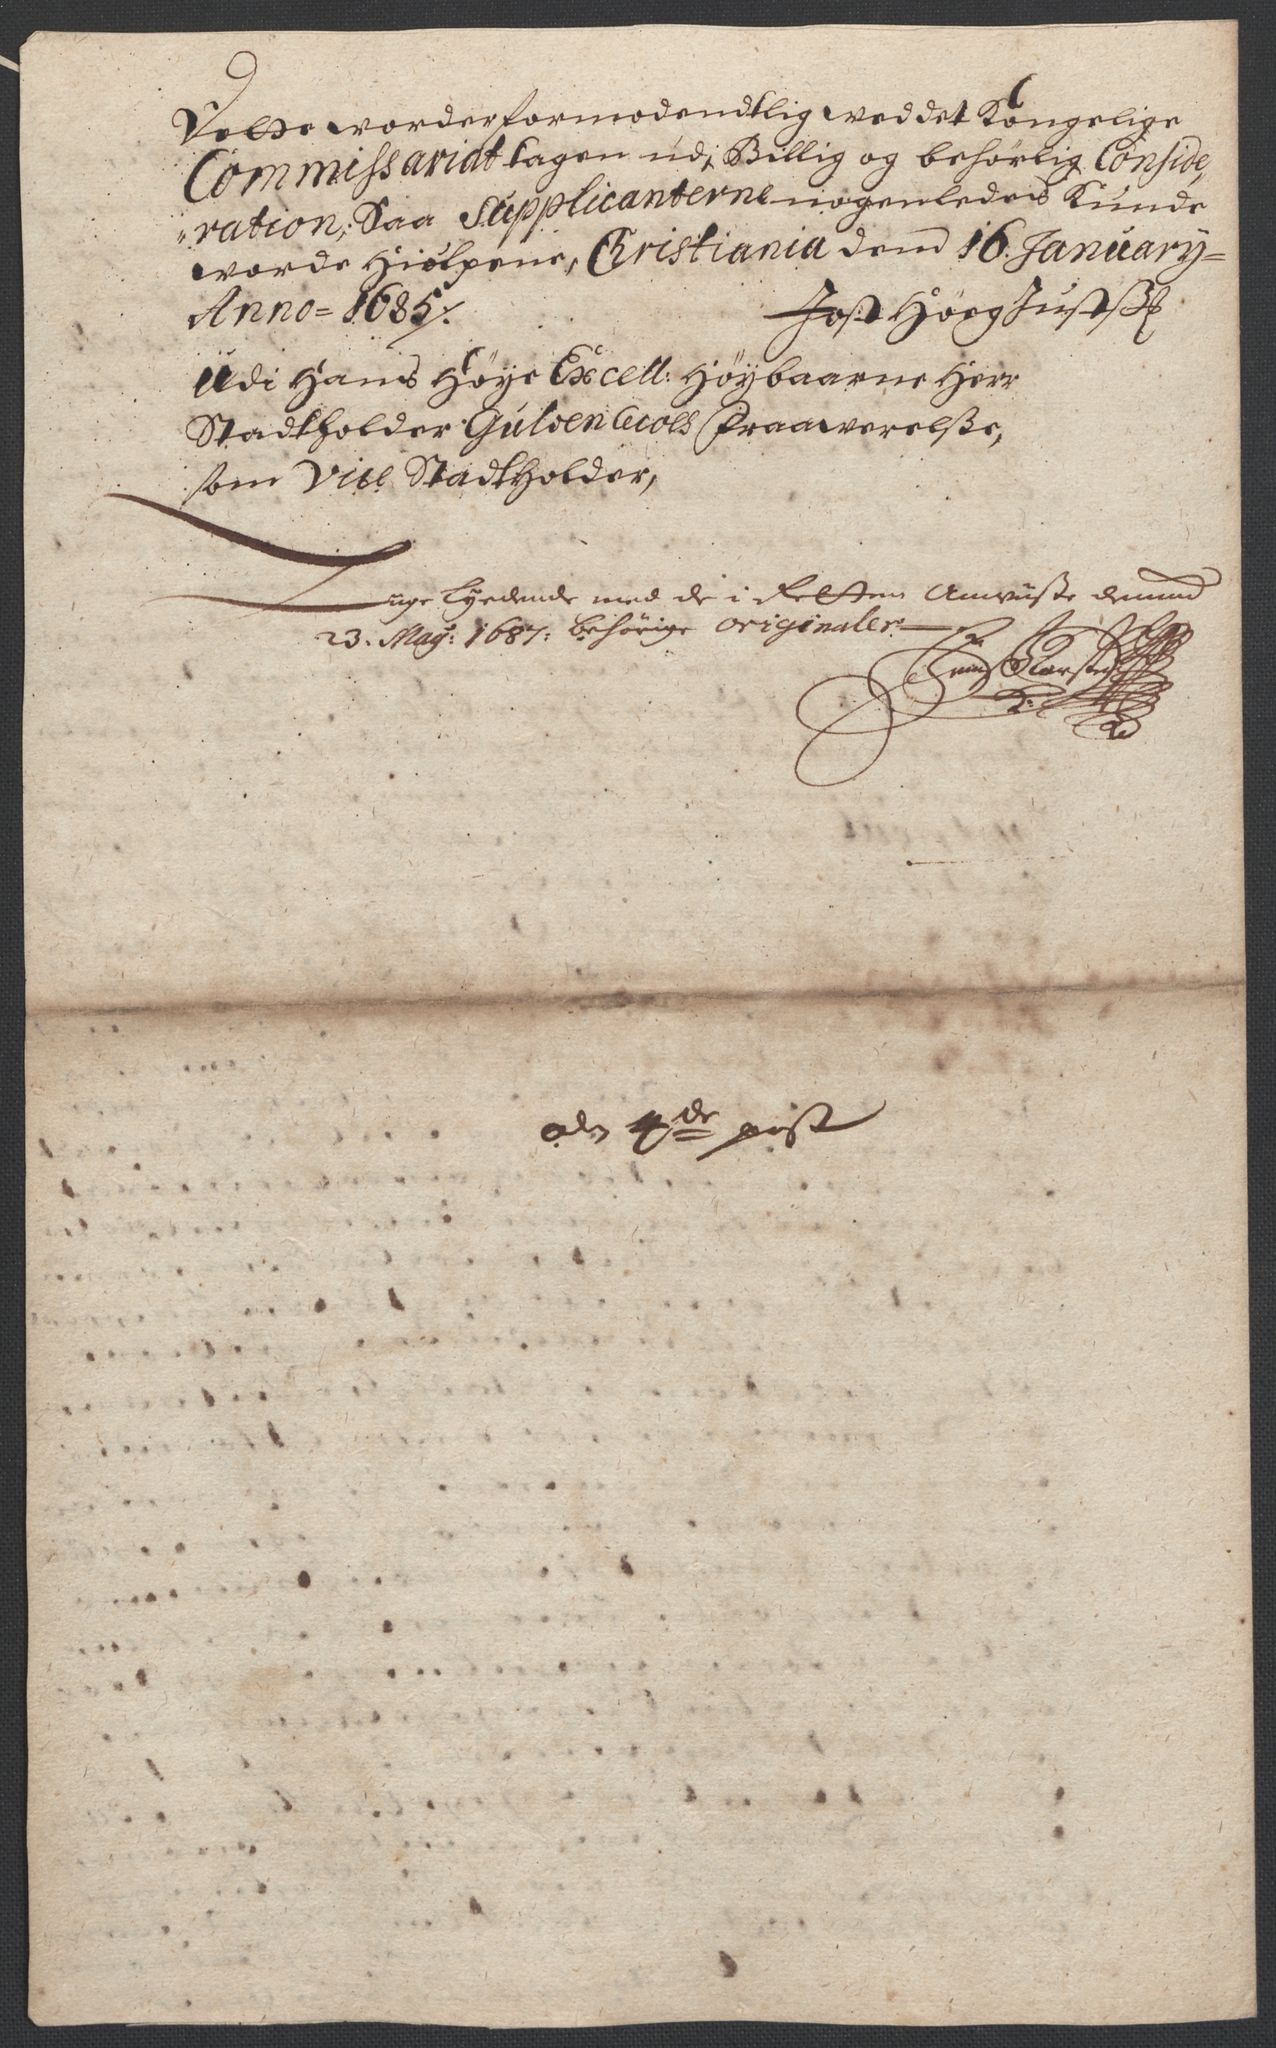 Dette worder formodendtlig wed det Kongelige
Commissariat tagen udj Billig og behörlig Conside,
"ration, Saa Supplicanterne nogenledes Kunde
worde Hiulpene, Christiania dend 16. January=
Anno= 1685/.
Jost Höeg Justß:
Udi Hans Höye Excell: Höybaarne Herr
Stadtholder Güldenlews Fraawerelße,
som Vice Stadtholder,
Lige Lydende med de i Retten Anwiiste dennd
23. May: 1687: behörige originaler
den 4de post